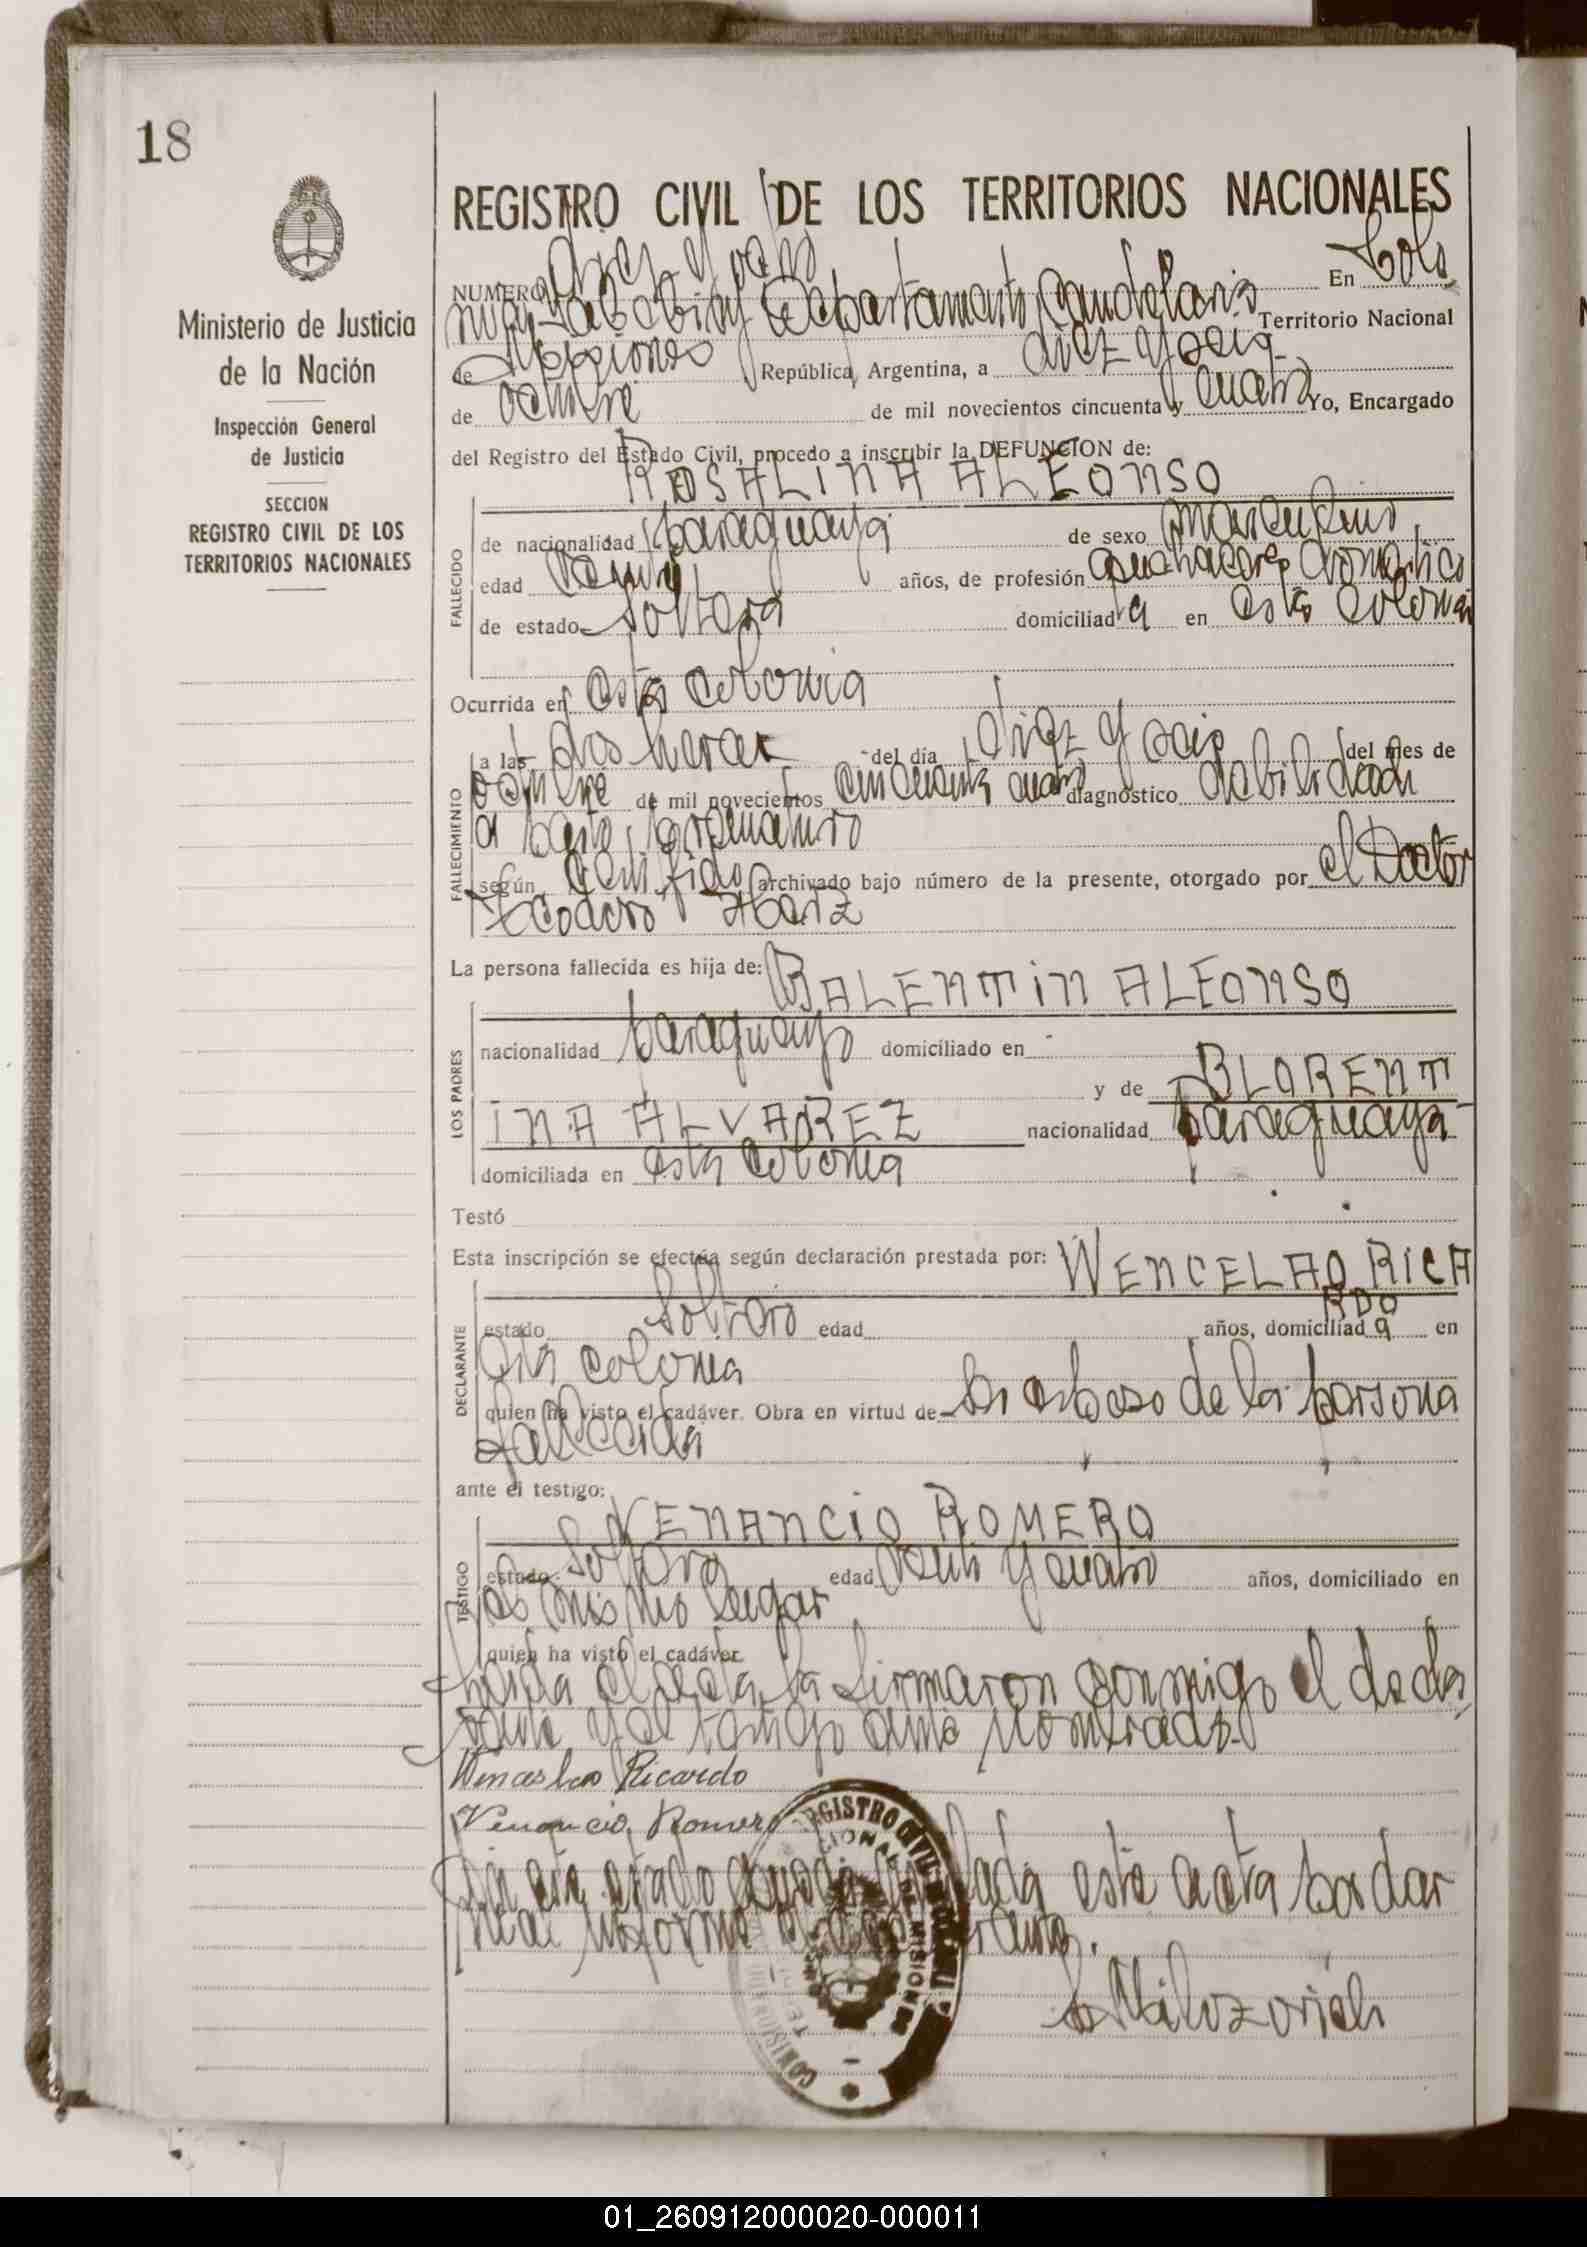 18
REGISTRO CIVIL DE LOS TERRITORIOS NACIONALES
Ministerio de Justicia
de la Nación
Inspección General
de Justicia
SECCION
REGISTRO CIVIL DE LOS
TERRITORIOS NACIONALES
NUMERO Diez y ocho En Colo
Departamento Candelaria Territorio Nacional
de Misiones República Argentina, a diez y seis
de octubre de mil novecientos cincuenta y cuatro Yo, Encargado
del Registro del Estado Civil, procedo a inscribir la DEFUNCION de:
ROSALINA ALFONSO
FALLECIDO
de nacionalidad paraguaya de sexo masculino
edad años, de profesión domestico
de estado soltera domiciliada en esta colonia
Ocurrida en esta colonia
FALLECIMIENTO
a las dos horas del día diez y seis del mes de
octubre de mil novecientos cincuenta cuatro diagnóstico debilidad
a parto prematuro
según certificado archivado bajo número de la presente, otorgado por el Doctor
Teodoro
La persona fallecida es hija de: BALENTIN ALFONSO
LOS PADRES
nacionalidad paraguayo domiciliado en
y de BLORENT
INA ALVAREZ nacionalidad paraguaya
domiciliada en esta colonia
Testó
Esta inscripción se efectúa según declaración prestada por: WENCELAO RICA
RDO
DECLARANTE
estado soltero edad años, domiciliado en
esta colonia
quien ha visto el cadáver. Obra en virtud de esposo de la persona
fallecida
ante el testigo: VENANCIO ROMERO
TESTIGO
estado soltero edad veinte y cuatro años, domiciliado en
mismo lugar
quien ha visto el cadáver.
Leida el acta la firmaron conmigo el decla
rante y el testigo ante nombrado.
Wenceslao Ricardo
Venancio Romero
En este estado queda anulada esta acta por dar
mal informe
REGISTRO CIVIL
MISIONES
01_260912000020-000011